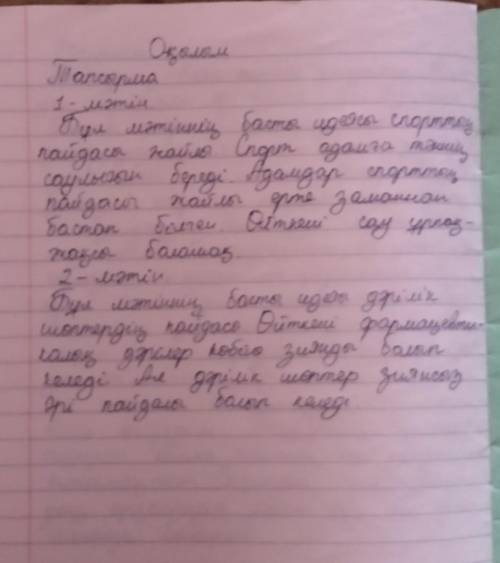 Оқылым
Тапсырма
1 - мәтін
Бұл мәтіннің басты идеясы спорттың
пайдасы жайлы Спорт адамға тәннің
саулығын береді. Адамдар спорттың
пайдасы жайлы ерте заманнан
бастап білген Өйткені сау ұрпақ-
жақсы болашақ.
2 - мәтін
Бұл мәтіннің басты идея дәрілік
шөптердің пайдасы Өйткені фармацевти-
калық дәрілер көбісі зиянды болып
келеді Ал дәрілік шөптер зиянсыз
әрі пайдалы болып келеді